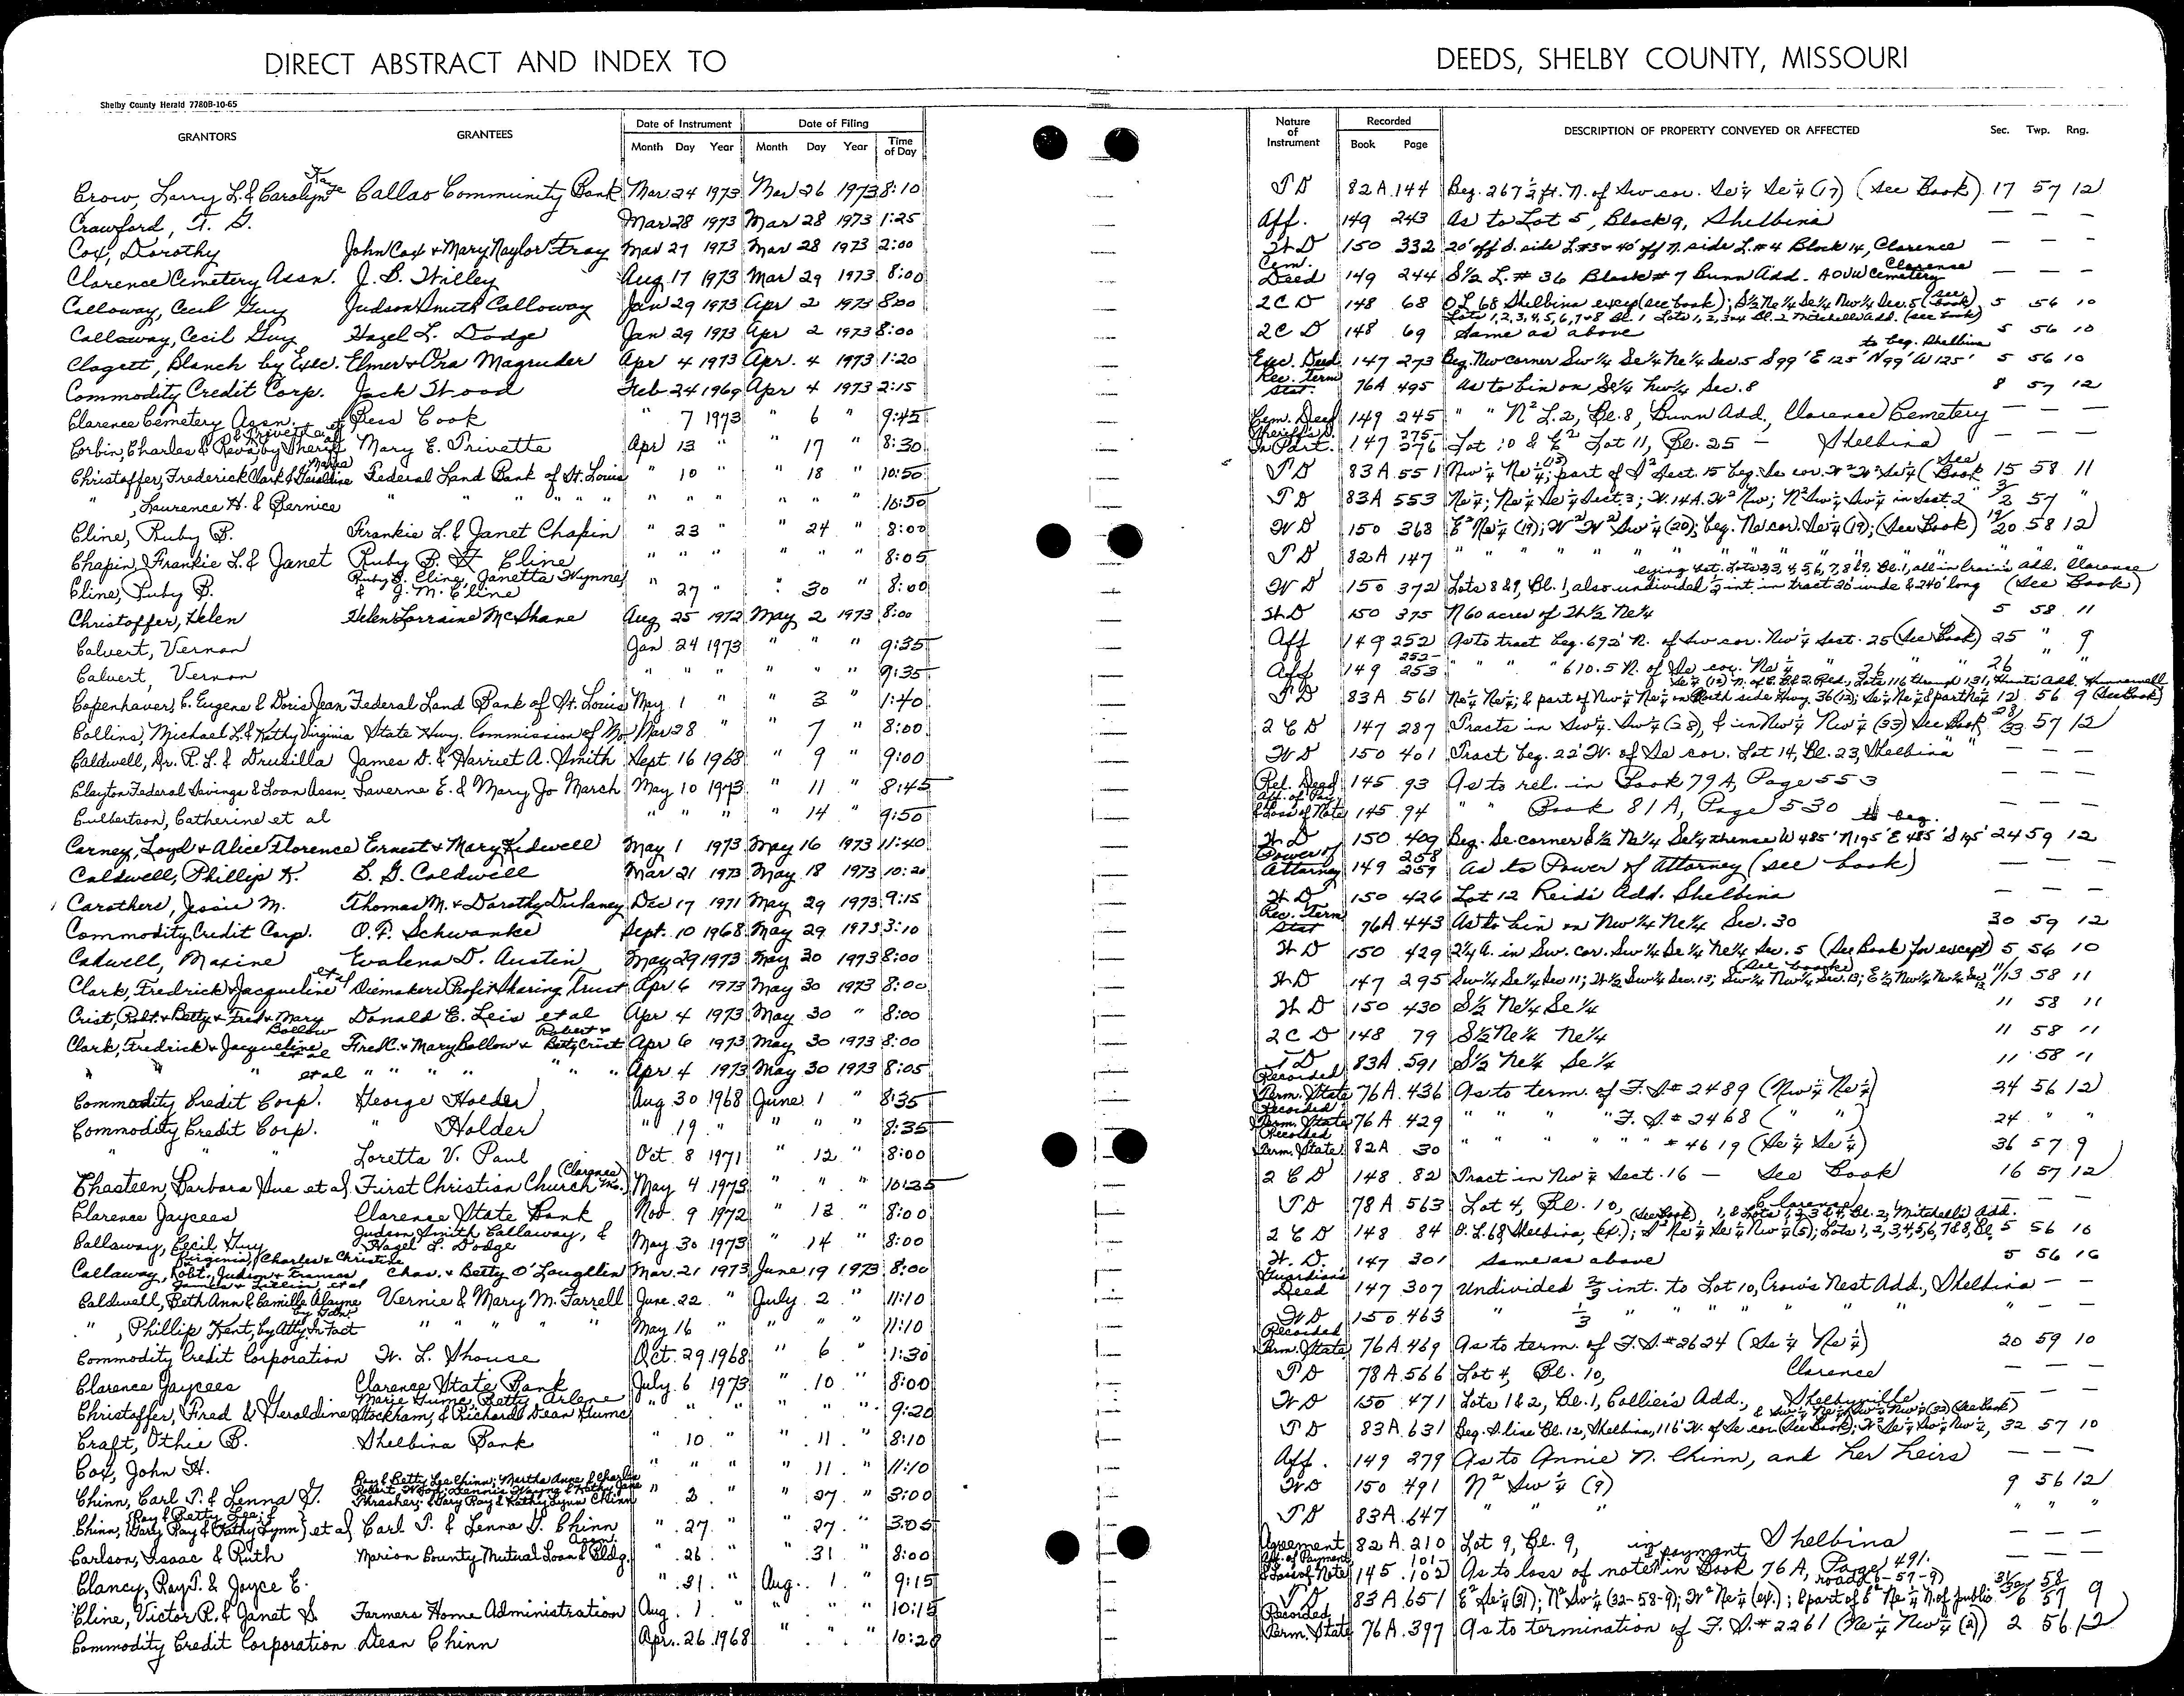 DIRECT ABSTRACT AND INDEX TO
DEEDS, SHELBY COUNTY, MISSOURI
Shelby County Herald 7780B-10-65
GRANTORS GRANTEES Date of Instrument Month Day Year Date of Filing Month Day Year Time of Day
Nature of Instrument Recorded Book Page DESCRIPTION OF PROPERTY CONVEYED OR AFFECTED Sec. Twp. Rng.
Crow, Larry L. & Carolyn Faye Callao Community Bank Mar 24 1973 Mar 26 1973 8:10 TD 82A 144 Beg. 267½ ft. N. of Sw cor. Se¼ Se¼ (17) (See Book) 17 57 12
Crawford, T. G. Mar 28 1973 Mar 28 1973 1:25 Aff. 149 243 As to Lot 5, Block 9, Shelbina — — —
Cox, Dorothy John Cox & Mary Naylor Fray Mar 27 1973 Mar 28 1973 2:00 WD 150 332 20' off S. side L.#3 & 40' off N. side L.#4 Block 14, Clarence — — —
Clarence Cemetery Assn. J. B. Willey Aug 17 1973 Mar 29 1973 8:00 Cem. Deed 149 244 S½ L.#36 Block #7 Bunn Add. AOUW Clarence Cemetery — — —
Calloway, Cecil Guy Judson Smith Calloway Jan 29 1973 Apr 2 1973 8:00 2CD 148 68 OL 68 Shelbina except (see book); S½ Ne¼ Se¼ Nw¼ Sec. 5 (see book) 5 56 10
Lots 1, 2, 3, 4, 5, 6, 7 & 8 Bl. 1 Lots 1, 2, 3 & 4 Bl. 2 Mitchells Add. (see book)
Callaway, Cecil Guy Hazel L. Dodge Jan 29 1973 Apr 2 1973 8:00 2CD 148 69 Same as above 5 56 10
Clagett, Blanch by Exec. Elmer & Ora Magruder Apr 4 1973 Apr. 4 1973 1:20 Exec. Deed 147 273 Beg. Nw corner Sw¼ Se¼ Ne¼ Sec. 5 S99' E125' N99' W125' to beg. Shelbina 5 56 10
Commodity Credit Corp. Jack Wood Feb 24 1969 Apr 4 1973 2:15 Rec. Term Stat. 76A 495 As to lien on Se¼ Nw¼ Sec. 8 8 57 12
Clarence Cemetery Assn. Bess Cook " 7 1973 " 6 " 9:45 Cem. Deed 149 245 " " N² L.2, Bl. 8, Bunn Add., Clarence Cemetery — — —
Corbin, Charles & Reva by Sheriff & Privett et al Mary E. Privette Apr 13 " " 17 " 8:30 Sheriff's D. In Part. 147 275-276 Lot 10 & E² Lot 11, Bl. 25 — Shelbina — — —
Christoffer, Frederick Clark & Geraldine Federal Land Bank of St. Louis " 10 " " 18 " 10:50 TD 83A 551 Nw¼ Ne¼ (15); part of S² Sect. 15 beg. Se cor. W² W² Se¼ (See Book 15 58 11
" , Laurence H. & Bernice " " " " " " " " " " " 10:50 TD 83A 553 Ne¼; Ne¼ Se¼ Sect. 3; W. 14A. W² Nw; N² Sw¼ Sw¼ in Sect. 2 3/2 57 "
Cline, Ruby B. Frankie L. & Janet Chapin " 23 " " 24 " 8:00 WD 150 368 E² Ne¼ (19); W² W² Sw¼ (20); beg. Ne cor. Se¼ (19); (See Book) 19/20 58 12
Chapin, Frankie L. & Janet Ruby B. Cline " " " " " " 8:05 TD 82A 147 " " " " " "
Cline, Ruby B. Ruby B. Cline, Janetta Wynne, & J. M. Cline " 27 " " 30 " 8:00 WD 150 372 Lots 8 & 9, Bl. 1, also undivided ½ int. in tract 20' wide & 240' long (See Book)
Christoffer, Helen Helen Lorraine McShane Aug 25 1972 May 2 1973 8:00 WD 150 375 N 60 acres of W½ Ne¼ 5 58 11
Calvert, Vernon Jan 24 1973 " " " 9:35 Aff 149 252 As to tract beg. 692' N. of Sw cor. Nw¼ Sect. 25 (See Book) 25 " 9
Calvert, Vernon " " " " " " 9:35 Aff 149 252-253 " " " 610.5 N. of Se cor. Ne¼ " 26 " " 26 " "
Copenhaver, C. Eugene & Doris Jean Federal Land Bank of St. Louis May 1 " " 3 " 1:40 TD 83A 561 Ne¼ Ne¼; & part of Nw¼ Ne¼ on North side Hwy. 36 (12); 12 56 9 (See Book)
Collins, Michael L. & Kathy Virginia State Hwy. Commission of Mo. Mar 28 " " 7 " 8:00 2CD 147 287 Tracts in Sw¼ Sw¼ (28), & in Nw¼ Nw¼ (33) See Book 28/33 57 12
Caldwell, Dr. R. L. & Drusilla James D. & Harriet A. Smith Sept. 16 1968 " 9 " 9:00 WD 150 401 Tract beg. 22' W. of Se cor. Lot 14, Bl. 23, Shelbina — — —
Clayton Federal Savings & Loan Assn. Laverne E. & Mary Jo Marsh May 10 1973 " 11 " 8:45 Rel. Deed 145 93 As to rel. in Book 79A, Page 553 — — —
Culbertson, Catherine et al " " " " 14 " 9:50 Aff. of Pay. & Loss of Note 145 94 " " Book 81A, Page 530 — — —
Carney, Loyd & Alice Florence Ernest & Mary Kidwell May 1 1973 May 16 1973 11:40 WD 150 409 Beg. Se corner S½ Ne¼ Se¼ thence W 485' N195' E 485' S195' to beg. 24 59 12
Caldwell, Phillip K. B. G. Caldwell Mar 21 1973 May 18 1973 10:20 Power of Attorney 149 258 259 As to Power of Attorney (see book) — — —
Carothers, Jessie M. Thomas M. & Dorothy Dulaney Dec 17 1971 May 29 1973 9:15 WD 150 426 Lot 12 Reids Add. Shelbina — — —
Commodity Credit Corp. O. F. Schwanke Sept. 10 1968 May 29 1973 3:10 Rec. Term Stat 76A 443 As to lien on Nw¼ Ne¼ Sec. 30 30 59 12
Cadwell, Maxine Evalena D. Austin May 29 1973 May 30 1973 8:00 WD 150 429 2¼ A. in Sw. cor. Sw¼ Se¼ Ne¼ Sec. 5 (See Book for except) 5 56 10
Clark, Fredrick & Jacqueline et al Diemakers Profit Sharing Trust Apr 6 1973 May 30 1973 8:00 WD 147 295 Sw¼ Se¼ Sec 11; W½ Sw¼ Sec. 13; Sw¼ Nw¼ Sec. 13; E½ Nw¼ Nw¼ Sec 13 (see books) 11/13 58 11
Crist, Robt. & Betty & Fred & Mary Bollow Donald E. Leis et al Apr 4 1973 May 30 " 8:00 WD 150 430 S½ Ne¼ Se¼ 11 58 11
Clark, Fredrick & Jacqueline et al Fred C. & Mary Bollow & Robert & Betty Crist Apr 6 1973 May 30 1973 8:00 2CD 148 79 S½ Ne¼ Ne¼ 11 58 11
" " " et al " " " " " " " Apr 4 1973 May 30 1973 8:05 TD 83A 591 S½ Ne¼ Se¼ 11 58 11
Commodity Credit Corp. George Holder Aug 30 1968 June 1 " 8:35 Recorded Term. State 76A 436 As to term. of F.S.# 2489 (Nw¼ Ne¼) 24 56 12
Commodity Credit Corp. " Holder " 19 " " " " 8:35 Recorded Term. State 76A 429 " " " " F.S.# 2468 ( " " ) 24 " "
" " " Loretta V. Paul Oct. 8 1971 " 12 " 8:00 Recorded Term. State 82A 30 " " " " " # 4619 (Se¼ Se¼) 36 57 9
Chasteen, Barbara Sue et al First Christian Church (Clarence Mo.) May 4 1973 " " " 10:35 2CD 148 82 Tract in Nw¼ Sect. 16 — See Book 16 57 12
Clarence Jaycees Clarence State Bank Nov. 9 1972 " 13 " 8:00 TD 78A 563 Lot 4, Bl. 10, Clarence — — —
Callaway, Cecil Guy Judson Smith Callaway, & Hazel L. Dodge May 30 1973 " 14 " 8:00 2CD 148 84 O.L. 68 Shelbina, (ex.); S² Ne¼ Se¼ Nw¼ (5); Lots 1, 2, 3, 4, 5, 6, 7 & 8, Bl. (See Book) 1, & Lots 1, 2, 3 & 4, Bl. 2, Mitchell's Add. 5 56 10
Callaway, Robt., Judson & Frances Virginia, Charles & Christine et al Chas. & Betty O'Laughlin Mar. 21 1973 June 19 1973 8:00 W.D. 147 301 Same as above 5 56 10
Caldwell, Beth Ann & Camille Alayne by Gdn. Vernie & Mary M. Farrell June 22 " July 2 " 11:10 Guardian's Deed 147 307 Undivided ⅔ int. to Lot 10, Crow's Nest Add., Shelbina — —
" , Phillip Kent, by Atty. In Fact " " " " " May 16 " " " " 11:10 WD 150 463 " ⅓ " " " " " " " — —
Commodity Credit Corporation W. L. Shouse Oct. 29 1968 " 6 " 1:30 Recorded Term. State 76A 469 As to term. of F.S.# 2624 (Se¼ Ne¼) 20 59 10
Clarence Jaycees Clarence State Bank July 6 1973 " 10 " 8:00 TD 78A 566 Lot 4, Bl. 10, Clarence — — —
Christoffer, Fred & Geraldine Marie Hume, Betty Arlene Stockham, & Richard Dean Hume " " " " " " 9:20 WD 150 471 Lots 1 & 2, Bl. 1, Collier's Add., Shelbyville — — —
Craft, Othie B. Shelbina Bank " 10 " " 11 " 8:10 TD 83A 631 Beg. S. line Bl. 12, Shelbina, 116' W. of Se cor (See Book); W² Se¼ Sw¼ Nw¼, & Sw¼ Ne¼ Sw¼ Nw¼ (32) (See Book) 32 57 10
Cox, John H. " " " " 11 " 11:10 Aff. 149 279 As to Annie N. Chinn, and her heirs — — —
Chinn, Carl T. & Lenna G. Roy & Betty Lee Chinn; Martha Anne & Charlie Robert Wood; Dennis Wayne & Kathy Jane Thrasher; & Gary Ray & Kathy Lynn Chinn " 3 " " 27 " 3:00 WD 150 491 N² Sw¼ (9) 9 56 12
Chinn, (Roy & Betty Lee; & Gary Ray & Kathy Lynn) et al Carl T. & Lenna G. Chinn " 27 " " 27 " 3:05 TD 83A 647 " " " " " "
Carlson, Isaac & Ruth Marion County Mutual Loan & Bldg. Assn. " 26 " " 31 " 8:00 Agreement 82A 210 Lot 9, Bl. 9, Shelbina — — —
Clancy, Ray T. & Joyce E. " 31 " Aug. 1 " 9:15 Aff. of Payment & Loss of Note 145 101 102 As to loss of note & payment in Book 76A, Page 491. — — —
Cline, Victor R. & Janet S. Farmers Home Administration Aug. 1 " " " " 10:15 TD 83A 651 E² Se¼ (31); N² Sw¼ (32-58-9); W² Ne¼ (ex.); & part of E² Ne¼ N. of public road (6-57-9) 31/32 58 6 57 9
Commodity Credit Corporation Dean Chinn Apr. 26 1968 " " " 10:20 Recorded Term. State 76A 397 As to termination of F.S.# 2261 (Ne¼ Nw¼ (2)) 2 56 12